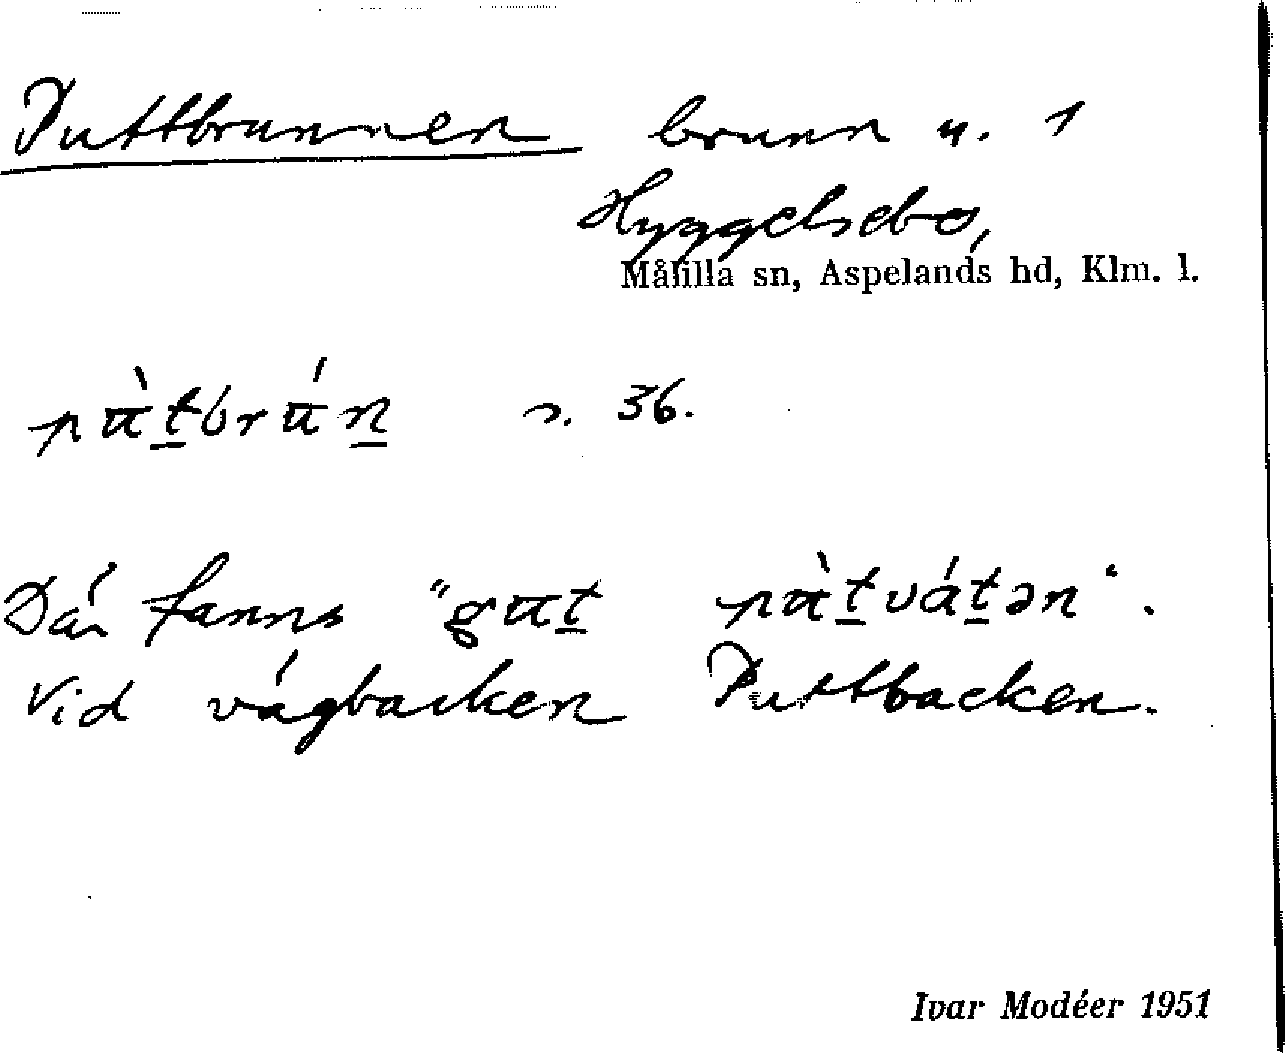 Puttbrunnen brunn u. 1
Hyggelsebo,
Målilla sn, Aspelands hd, Klm. l.
pùt̲brún̲ s. 36.
Där fanns "gut̲ pùt̲vát̲ən".
Vid vägbacken Puttbacken.
Ivar Modéer 1951